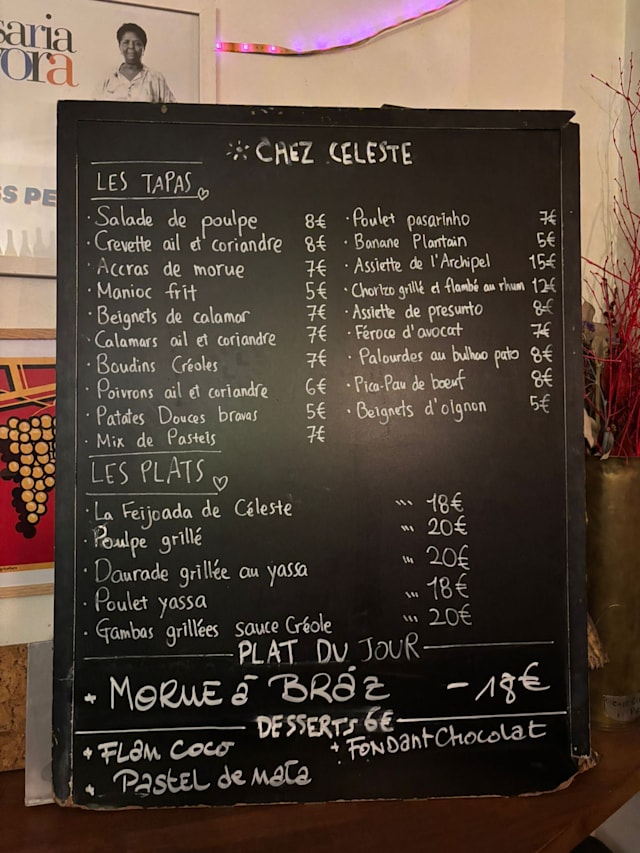 saria
vora
SS PE
CHEZ CELESTE
LES TAPAS
· Salade de poulpe 8€
· Crevette ail et coriandre 8€
· Accras de morue 7€
· Manioc frit 5€
· Beignets de calamar 7€
· Calamars ail et coriandre 7€
· Boudins Créoles 7€
· Poivrons ail et coriandre 6€
· Patates Douces bravas 5€
· Mix de Pastels 7€
· Poulet pasarinho 7€
· Banane Plantain 5€
· Assiette de l'Archipel 15€
· Chorizo grillé et flambé au rhum 12€
· Assiette de presunto 8€
· Féroce d'avocat 7€
· Palourdes au bulhao pato 8€
· Pica-Pau de boeuf 8€
· Beignets d'oignon 5€
LES PLATS
· La Feijoada de Céleste ... 18€
· Poulpe grillé ... 20€
· Daurade grillée au yassa ... 20€
· Poulet yassa ... 18€
· Gambas grillées sauce Créole ... 20€
PLAT DU JOUR
+ MORUE á BRáZ - 18€
DESSERTS 6€
+ FLAM COCO
+ FONDANT CHOCOLAT
+ PASTEL de MATA